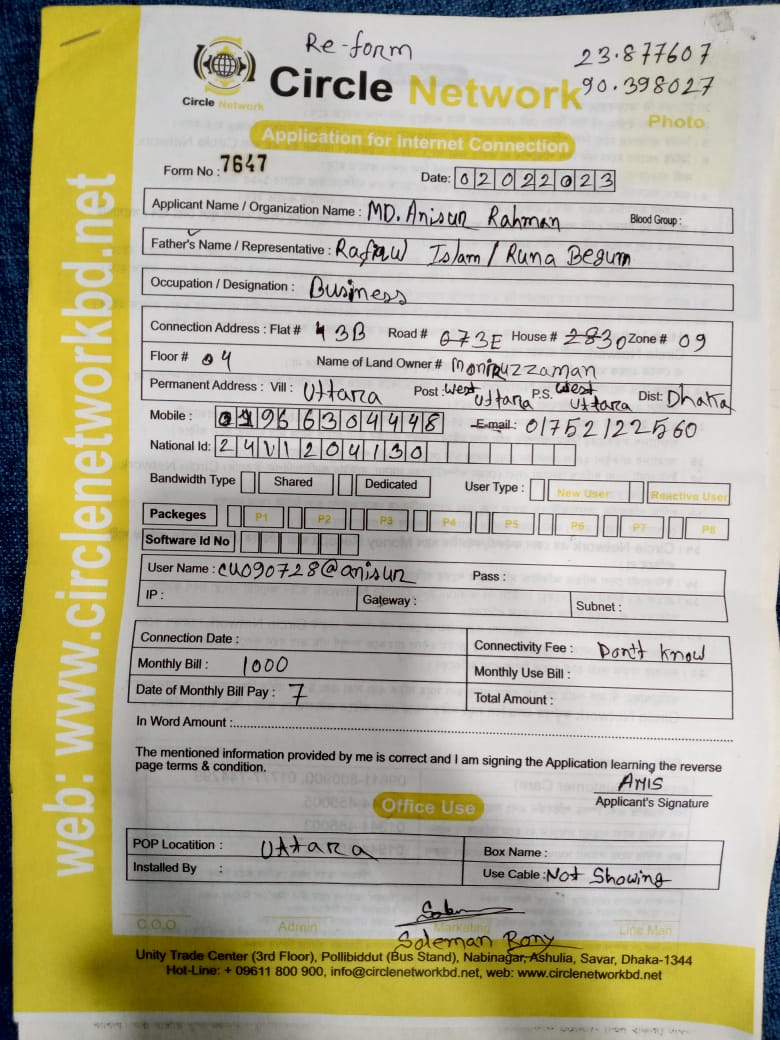 Re-form
23.877607
90.398027
Circle Network
Circle Network
Photo
Application for Internet Connection
Form No : 7647
Date: 02022023
Applicant Name / Organization Name : MD. Anisur Rahman Blood Group :
Father's Name / Representative : Islam / Runa Begum
Occupation / Designation : Business
Connection Address : Flat# 3B Road # 073E House # 2830 Zone # 09
Floor # 04 Name of Land Owner # Moniruzzaman
Permanent Address : Vill : Uttara Post : West Uttara P.S. West Uttara Dist: Dhaka
Mobile : 01966304448 E-mail : 01752122560
National Id: 2411204130
Bandwidth Type Shared Dedicated User Type : New User Reactive User
Packeges P1 P2 P3 P4 P5 P6 P7 P8
Software Id No
User Name : cu090728@anisur Pass :
IP : Gateway : Subnet :
Connection Date : Connectivity Fee : Don't know
Monthly Bill : 1000 Monthly Use Bill :
Date of Monthly Bill Pay : 7 Total Amount :
In Word Amount :
The mentioned information provided by me is correct and I am signing the Application learning the reverse
page terms & condition.
ANIS
Applicant's Signature
Office Use
POP Locatition : Uttara Box Name :
Installed By : Use Cable : Not Showing
C.O.O Admin Marketing Line Man
Soleman Rony
Unity Trade Center (3rd Floor), Pollibiddut (Bus Stand), Nabinagar, Ashulia, Savar, Dhaka-1344
Hot-Line: + 09611 800 900, info@circlenetworkbd.net, web: www.circlenetworkbd.net
web: www.circlenetworkbd.net